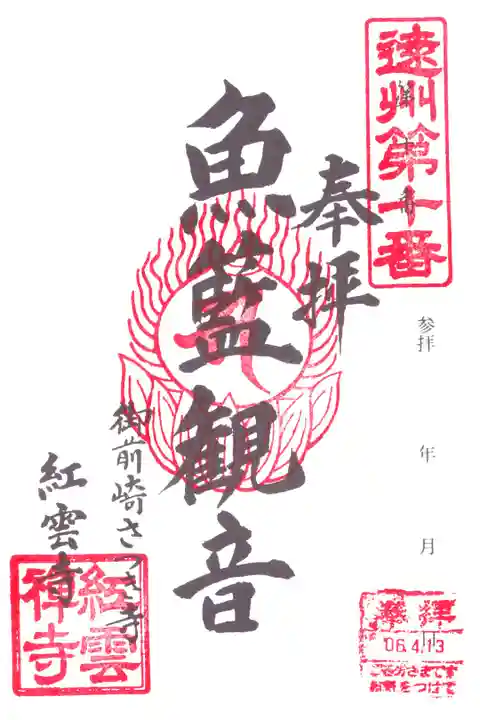 遠州第十番
参拝 年 月 日
奉拝
魚籃観音
御前崎さつき寺
紅雲寺
紅雲禅寺
奉拝
06.4.13
ごくろうさまです
お気をつけて